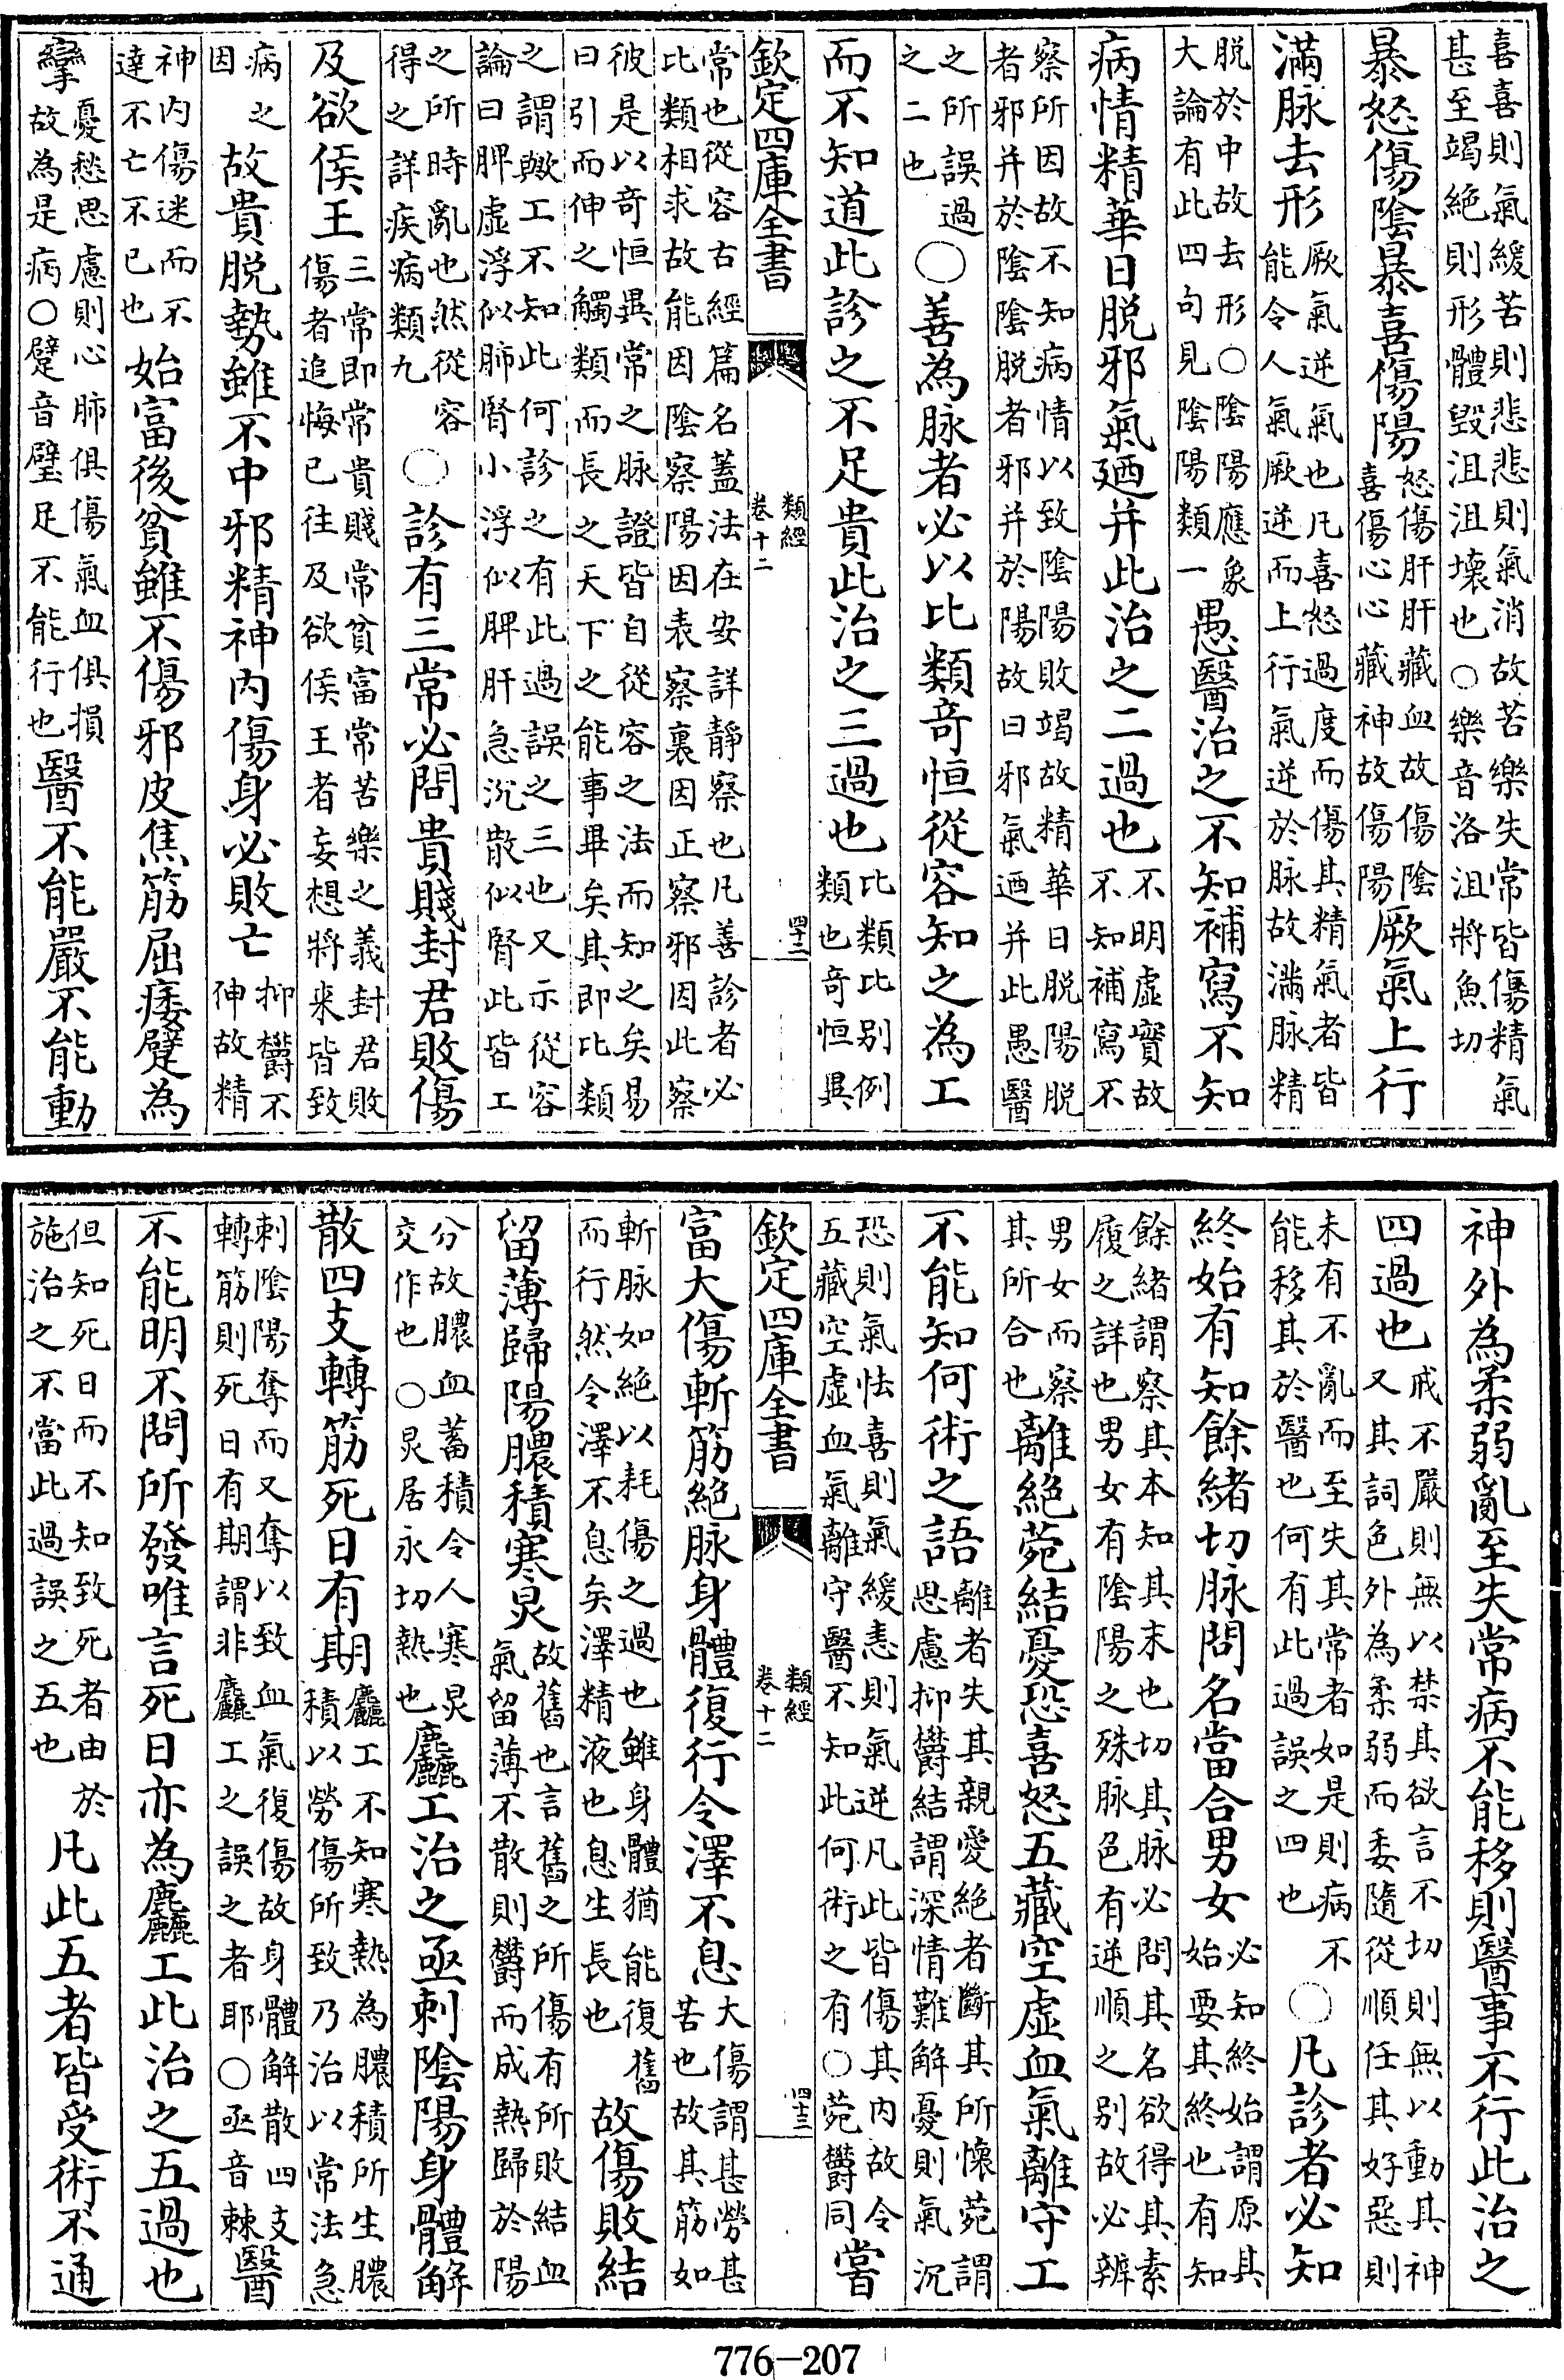 喜喜則氣緩苦則悲悲則氣消故苦樂失常皆傷精氣
甚至竭絕則形體毀沮沮壞也○樂音洛沮將魚切
暴怒傷陰暴喜傷陽怒傷肝肝藏血故傷陰喜傷心心藏神故傷陽厥氣上行
滿脉去形厥氣逆氣也凡喜怒過度而傷其精氣者皆能令人氣厥逆而上行氣逆於脉故滿脉精
脱於中故去形○陰陽應象大論有此四句見陰陽類一愚醫治之不知補寫不知
病情精華日脱邪氣廼并此治之二過也不明虛實故不知補寫不
察所因故不知病情以致陰陽敗竭故精華日脱陽脱
者邪并於陰陰脱者邪并於陽故曰邪氣迺并此愚醫
之所誤過之二也○善為脉者必以比類奇恒從容知之為工
而不知道此診之不足貴此治之三過也比類比别例類也奇恒異
欽定四庫全書 類經卷十二 四十二
常也從容古經篇名蓋法在安詳靜察也凡善診者必
比類相求故能因陰察陽因表察裏因正察邪因此察
彼是以奇恒異常之脉證皆自從容之法而知之矣易
曰引而伸之觸類而長之天下之能事畢矣其即比類
之謂歟工不知此何診之有此過誤之三也又示從容
論曰脾虛浮似肺腎小浮似脾肝急沉散似腎此皆工
之所時亂也然從容得之詳疾病類九○診有三常必問貴賤封君敗傷
及欲侯王三常即常貴賤常貧富常苦樂之義封君敗傷者追悔已往及欲侯王者妄想將来皆致
病之因故貴脱勢雖不中邪精神內傷身必敗亡抑欝不伸故精
神內傷迷而不達不亡不已也始富後貧雖不傷邪皮焦筋屈痿躄為
攣憂愁思慮則心肺俱傷氣血俱損故為是病○躄音璧足不能行也醫不能嚴不能動
神外為柔弱亂至失常病不能移則醫事不行此治之
四過也戒不嚴則無以禁其欲言不切則無以動其神又其詞色外為柔弱而委隨從順任其好惡則
未有不亂而至失其常者如是則病不能移其於醫也何有此過誤之四也○凡診者必知
終始有知餘緒切脉問名當合男女必知終始謂原其始要其終也有知
餘緒謂察其本知其末也切其脉必問其名欲得其素
履之詳也男女有陰陽之殊脉色有逆順之别故必辨
男女而察其所合也離絕菀結憂恐喜怒五藏空虛血氣離守工
不能知何術之語離者失其親愛絕者斷其所懷菀謂思慮抑欝結謂深情難解憂則氣沉
恐則氣怯喜則氣緩恚則氣逆凡此皆傷其內故令五藏空虛血氣離守醫不知此何術之有○菀欝同嘗
欽定四庫全書 類經卷十二 四十三
富大傷斬筋絕脉身體復行令澤不息大傷謂甚勞甚苦也故其筋如
斬脉如絕以耗傷之過也雖身體猶能復舊而行然令澤不息矣澤精液也息生長也故傷敗結
留薄歸陽膿積寒炅故舊也言舊之所傷有所敗結血氣留薄不散則欝而成熱歸於陽
分故膿血蓄積令人寒炅交作也○炅居永切熱也麤工治之亟刺陰陽身體解
散四支轉筋死日有期麤工不知寒熱為膿積所生膿積以勞傷所致乃治以常法急
刺陰陽奪而又奪以致血氣復傷故身體解散四支轉筋則死日有期謂非麤工之誤之者耶○亟音棘醫
不能明不問所發唯言死日亦為麤工此治之五過也
但知死日而不知致死者由於施治之不當此過誤之五也凡此五者皆受術不通
776—207